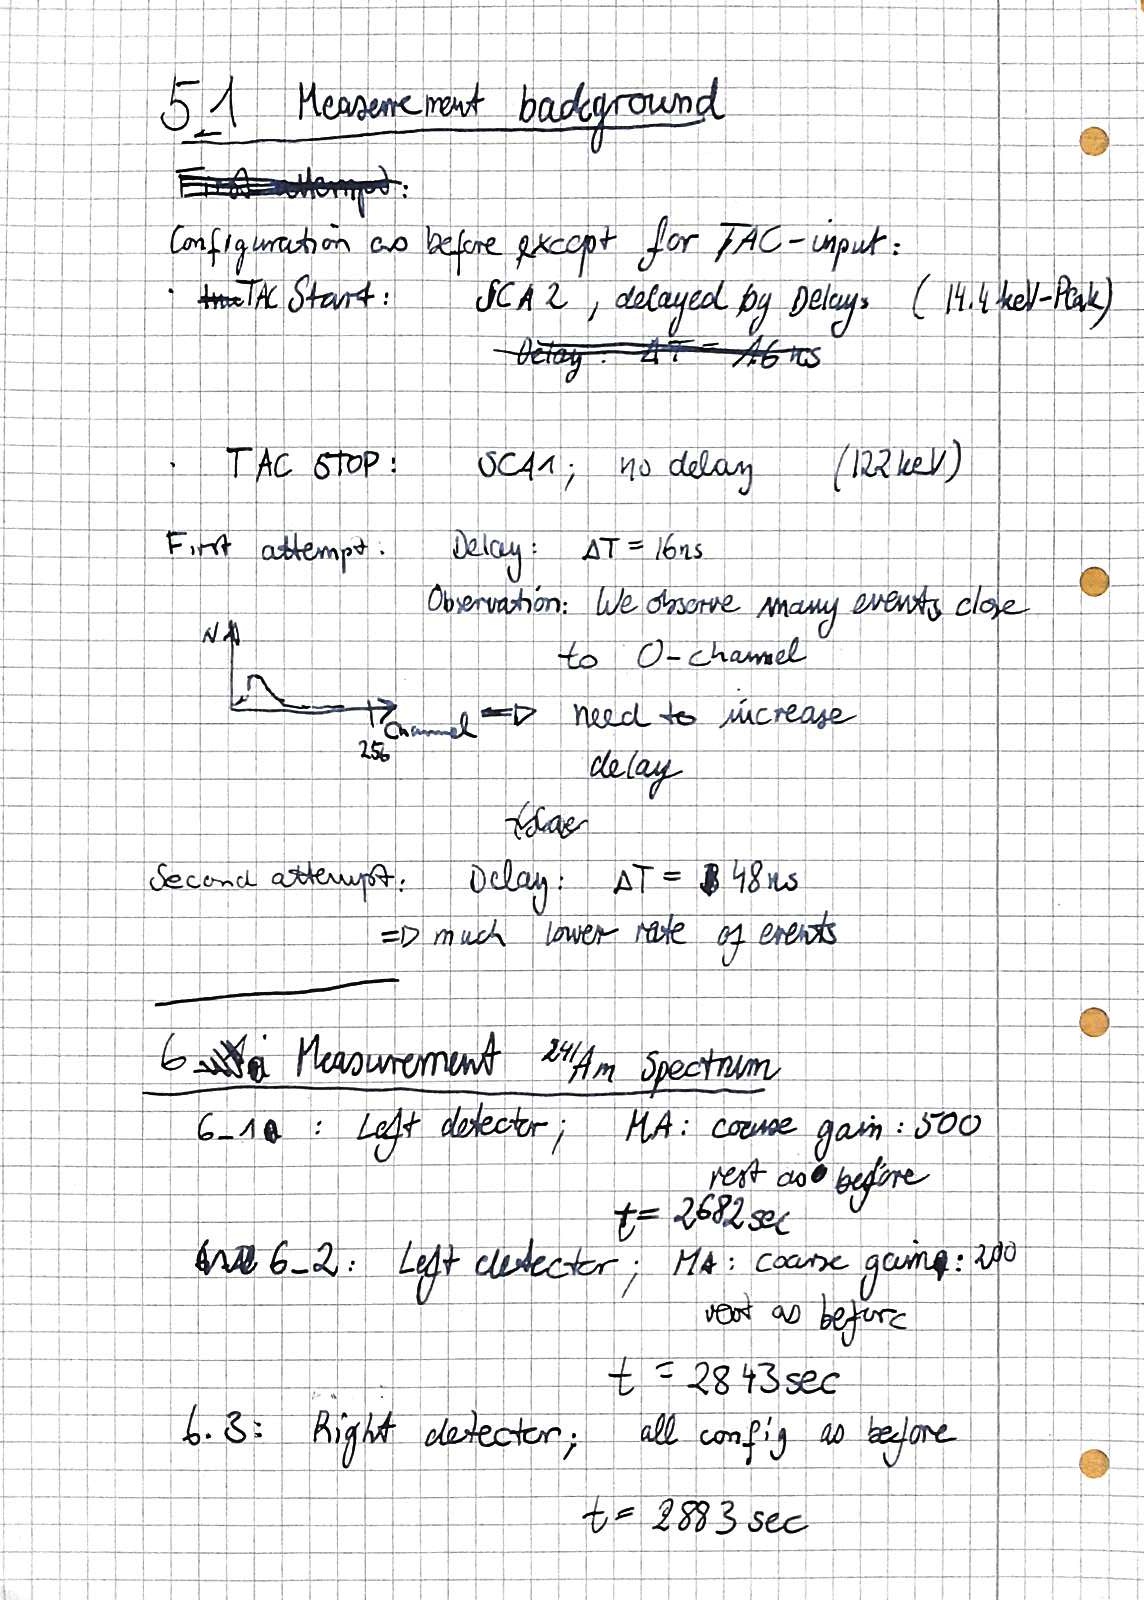 5_1 Measurement background
First attempt:
Configuration as before except for TAC-input:
· TAC Start: SCA 2, delayed by Delays (14.4 keV-Peak)
Delay: ΔT = 16 ns
· TAC STOP: SCA1; no delay (122 keV)
First attempt: Delay: ΔT = 16ns
Observation: We observe many events close
to 0-channel
N
Channel
256
=> need to increase
delay
Second attempt: Delay: ΔT = 48 ns
=> much lower rate of events
6 Measurement ²⁴¹Am Spectrum
6_1: Left detector; MA: coarse gain: 500
rest as before
t = 2682 sec
6_2: Left detector; MA: coarse gain: 200
rest as before
t = 2843 sec
6.3: Right detector; all config as before
t = 2883 sec